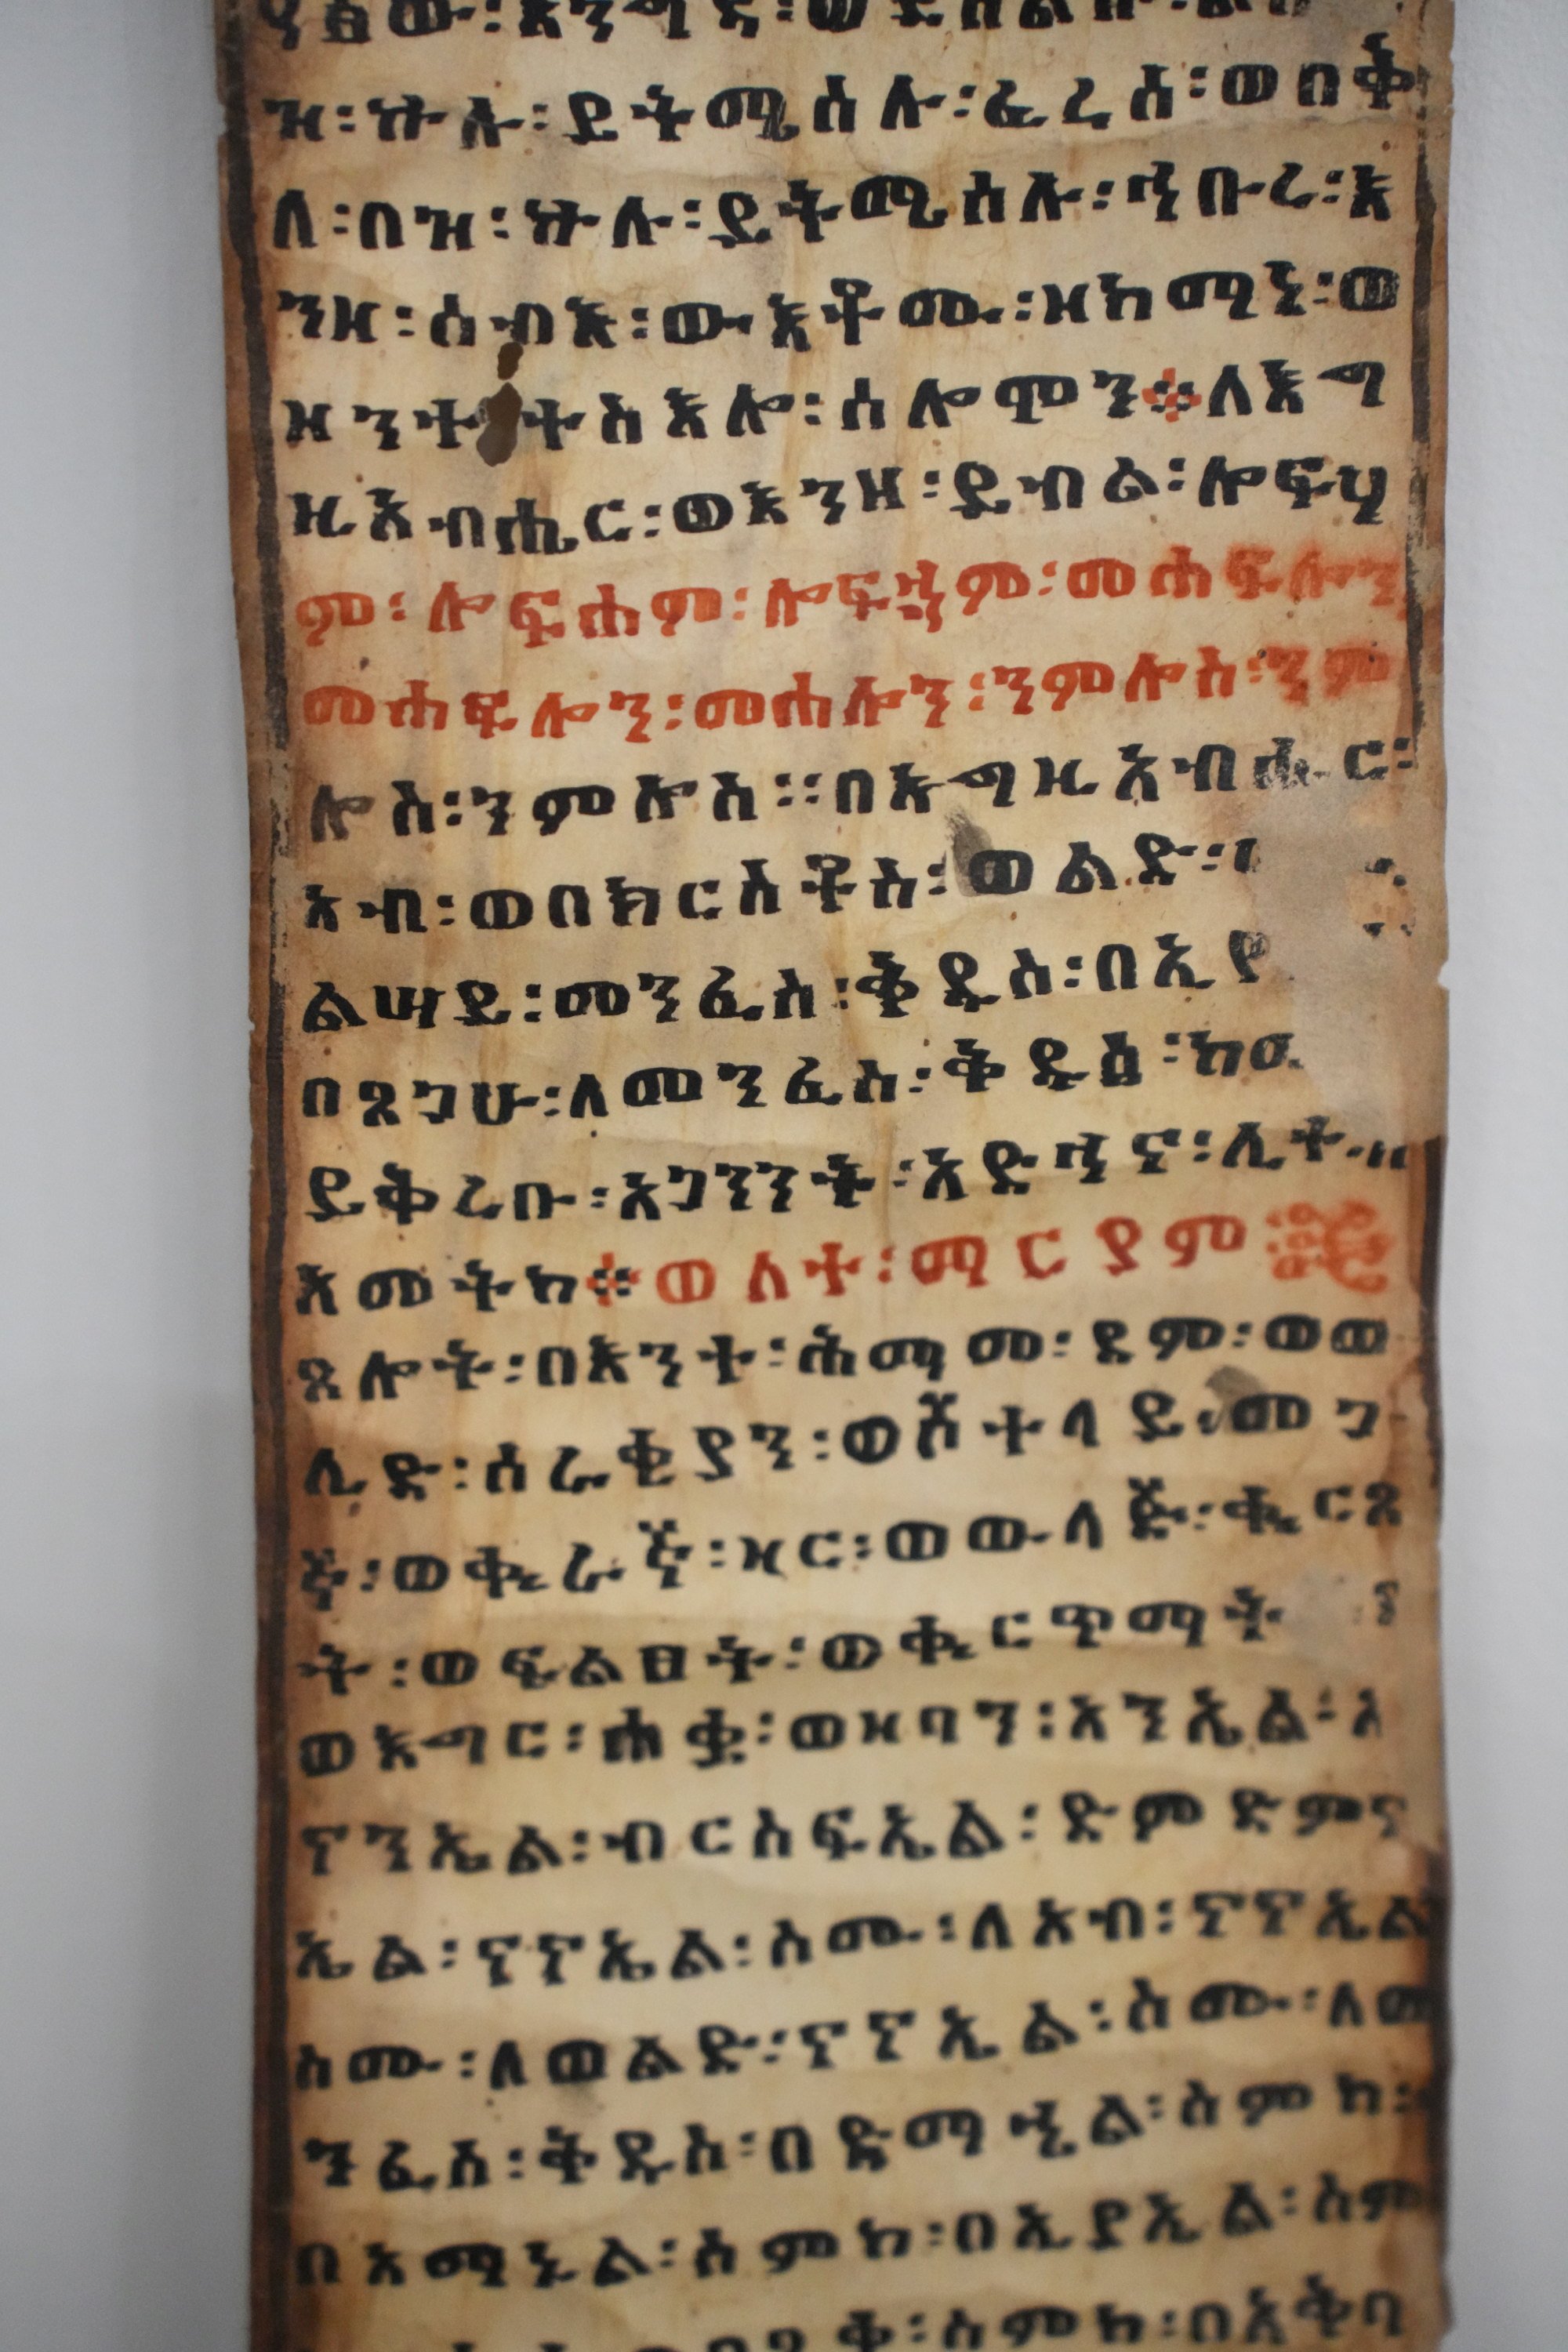 ዝ፡ኵሉ፡ይትሜሰሉ፡ፈረሰ፡ወበቅ
ለ፡በዝ፡ኵሉ፡ይትሜሰሉ፡ጓቡረ፡እ
ንዘ፡ሰብእ፡ውእቶሙ፡ዘከሚነ፡ወ
ዘንተ ተስእሎ፡ሰሎሞን፨ለእግ
ዚአብሔር፡ወእንዘ፡ይብል፡ሎፍሃ
ም፡ሎፍሐም፡ሎፍኟም፡መሐፍሎን
መሐፍሎን፡መሐሎን፡ንምሎስ፡ንም
ሎስ፡ንምሎስ፡፡በእግዚአብሔር፡
አብ፡ወበክርስቶስ፡ወልድ፡
ልሣይ፡መንፈስ፡ቅዱስ፡በኢየ
በጸጋሁ፡ለመንፈስ፡ቅዱስ፡ከመ
ይቅረቡ፡አጋንንት፡አድኅና፡ሊተ፡
አመትከ፨ወለተ፡ማርያም
ጸሎት፡በእንተ፡ሕማመ፡ደም፡ወወ
ሊድ፡ሰራቂያን፡ወሾተላይ፡መጋ
ኛ፡ወቍራኛ፡ዛር፡ወውላጅ፡ቍርጸ
ት፡ወፍልፀት፡ወቍርጥማት፡
ወእግር፡ሐቋ፡ወዛባን፡አንኤል፡
ናንኤል፡ብርስፍኤል፡ድምድምና
ኤል፡ናናኤል፡ስሙ፡ለአብ፡ናናኤል
ስሙ፡ለወልድ፡ናናኤል፡ስሙ፡ለመ
ንፈስ፡ቅዱስ፡በድማኂል፡ስምከ፡
በአማኑል፡ስምከ፡በኢያኢል፡ስም
ስምከ፡በአቅባ